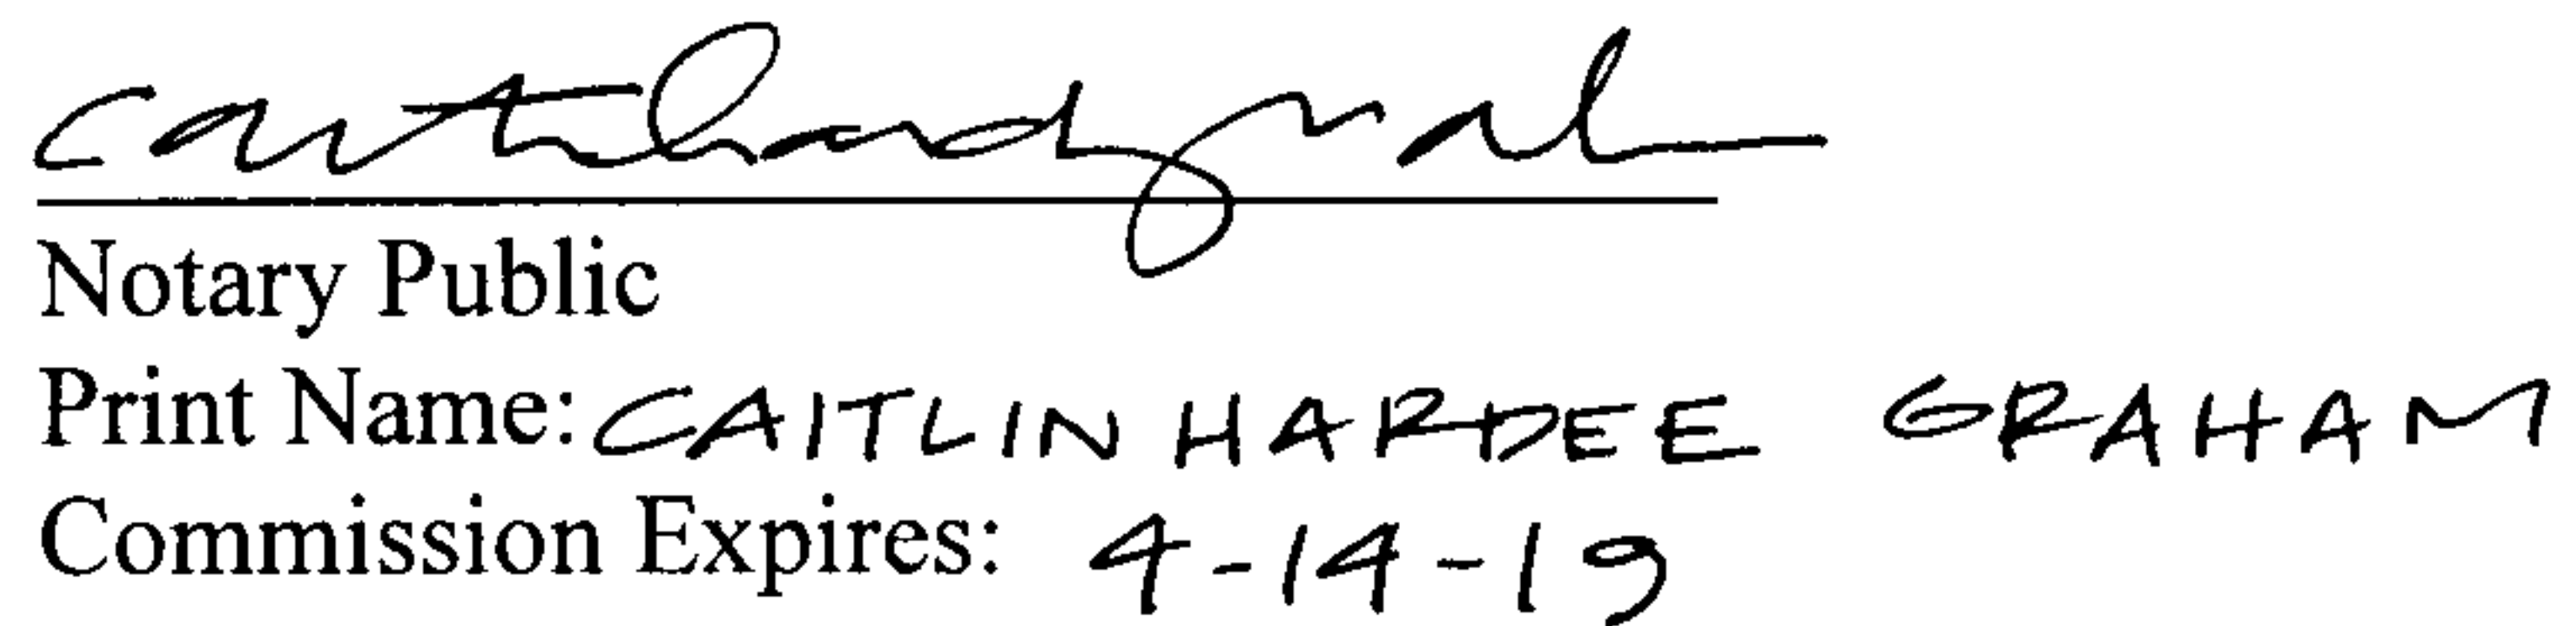 Notary Public
Print Name: CAITLIN HARDEE GRAHAM
Commission Expires: 4-14-19